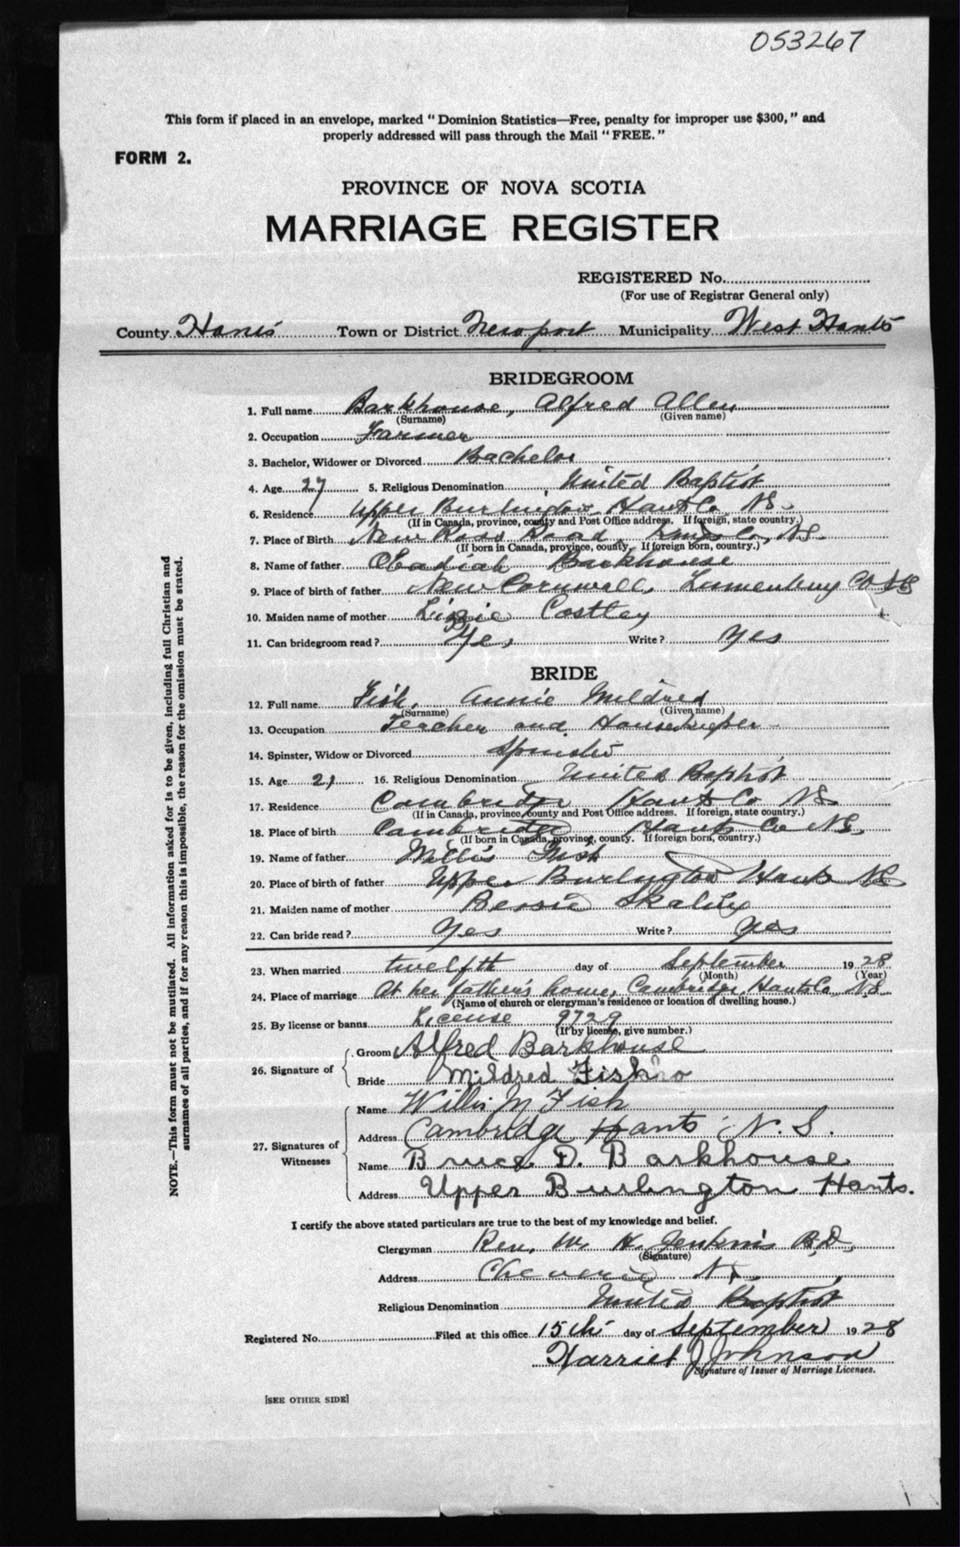 053267
This form if placed in an envelope, marked "Dominion Statistics—Free, penalty for improper use $300," and
properly addressed will pass through the Mail "FREE."
FORM 2.
PROVINCE OF NOVA SCOTIA
MARRIAGE REGISTER
REGISTERED No.
(For use of Registrar General only)
County Hants Town or District Newport Municipality West Hants
BRIDEGROOM
1. Full name Barkhouse, Alfred Allen
(Surname) (Given name)
2. Occupation Farmer
3. Bachelor, Widower or Divorced Bachelor
4. Age 27 5. Religious Denomination United Baptist
6. Residence Upper Burlington, Hants Co, NS.
(If in Canada, province, county and Post Office address. If foreign, state country.)
7. Place of Birth New Ross Road, Co, N.S.
(If born in Canada, province, county. If foreign born, country.)
8. Name of father Obadiah Barkhouse
9. Place of birth of father New Cornwall, Lunenburg Co NS
10. Maiden name of mother Lizzie Costley
11. Can bridegroom read? Yes Write? Yes
BRIDE
12. Full name Fish, Annie Mildred
(Surname) (Given name)
13. Occupation Teacher and Housekeeper
14. Spinster, Widow or Divorced Spinster
15. Age 21 16. Religious Denomination United Baptist
17. Residence Cambridge Hants Co NS
(If in Canada, province, county and Post Office address. If foreign, state country.)
18. Place of birth Cambridge Hants Co NS.
(If born in Canada, province, county. If foreign born, country.)
19. Name of father Willis Fish
20. Place of birth of father Upper Burlington Hants NS
21. Maiden name of mother Bessie
22. Can bride read? Yes Write? Yes
23. When married twelfth day of September 1928
(Month) (Year)
24. Place of marriage At her father's home, Cambridge, Hants Co, N.S.
(Name of church or clergyman's residence or location of dwelling house.)
25. By license or banns License 9729
(If by license, give number.)
26. Signature of Groom Alfred Barkhouse
Bride Mildred Fish
27. Signatures of Witnesses Name Willis M Fish
Address Cambridge Hants N.S.
Name Bruce D. Barkhouse
Address Upper Burlington Hants.
I certify the above stated particulars are true to the best of my knowledge and belief.
Clergyman Rev. W. H. Jenkins B.D.
(Signature)
Address Cheverie N.S.
Religious Denomination United Baptist
Registered No. Filed at this office 15th day of September 1928
Harriet J Johnson
Signature of Issuer of Marriage Licenses.
[SEE OTHER SIDE]
NOTE.—This form must not be mutilated. All information asked for is to be given, including full Christian and
surnames of all parties, and if for any reason this is impossible, the reason for the omission must be stated.